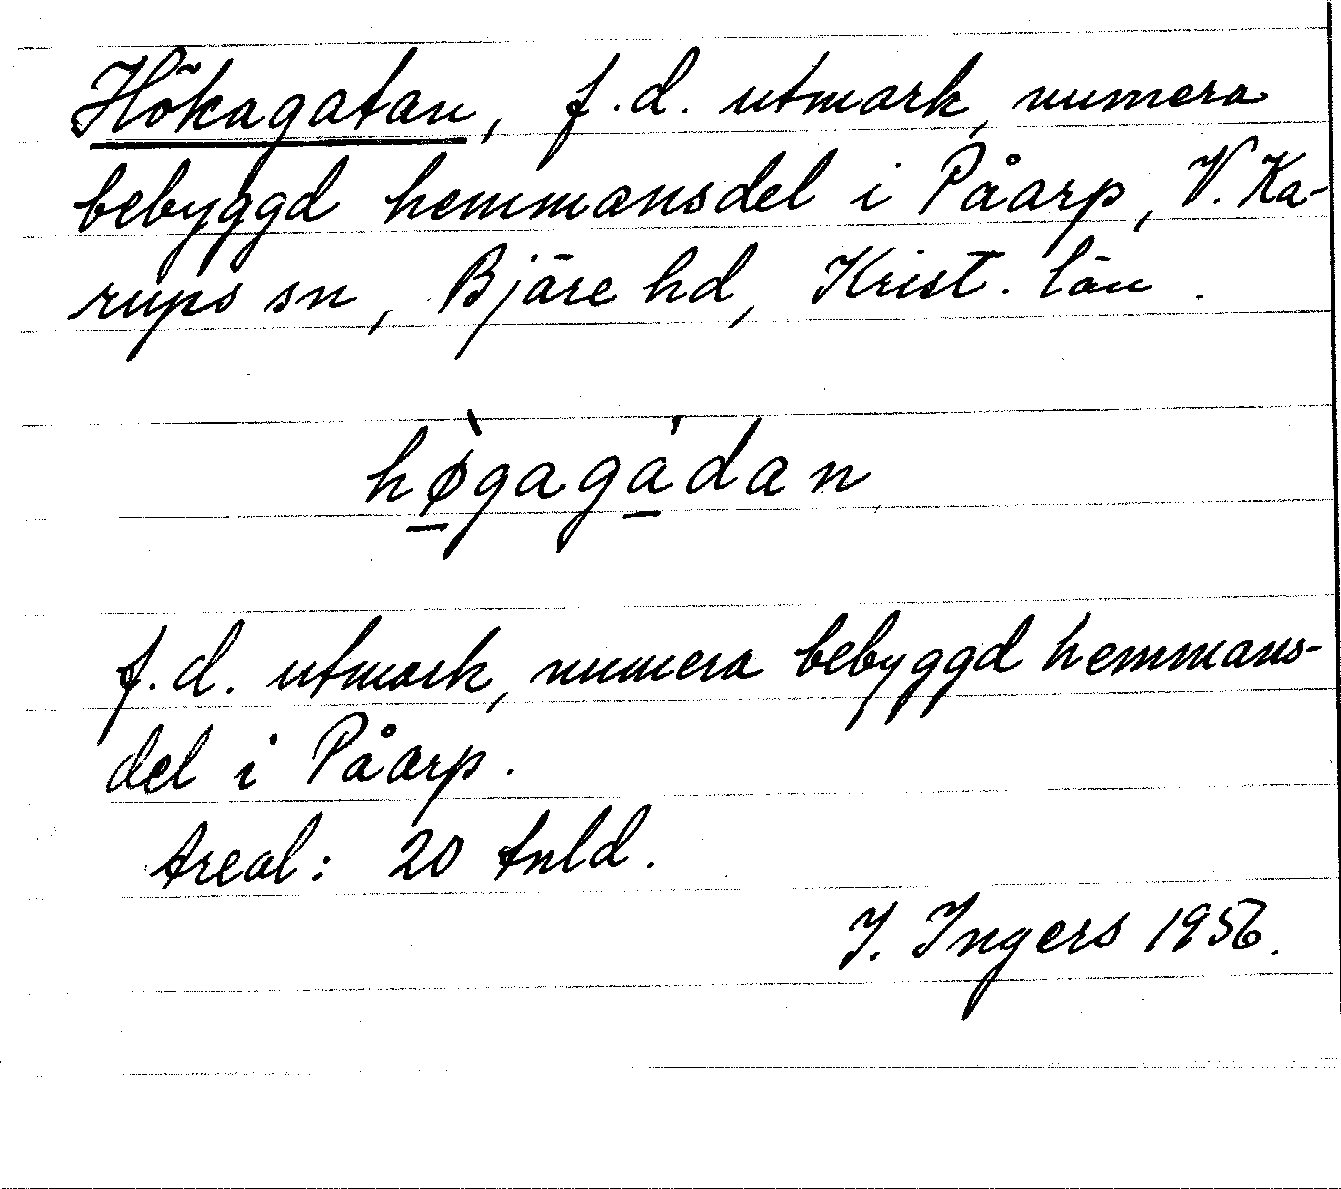 Hökagatan, f.d. utmark, numera
bebyggd hemmansdel i Påarp, V. Ka-
rups sn, Bjäre hd, Krist. län.
hø̱̀gagá̱dan
f.d. utmark, numera bebyggd hemmans-
del i Påarp.
Areal: 20 tnld.
I. Ingers 1956.